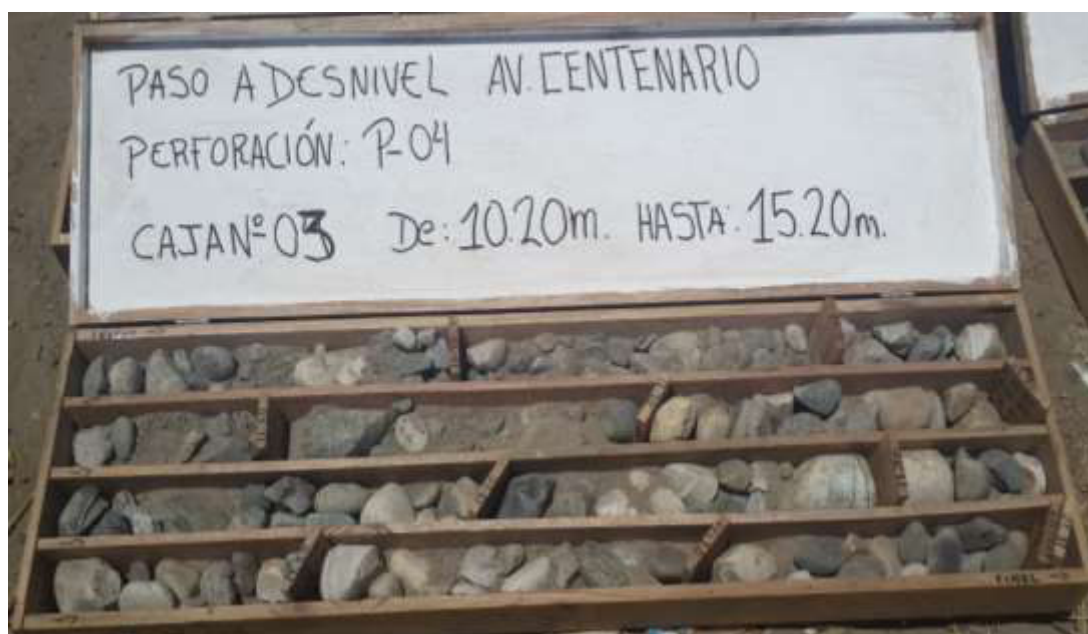 PASO A DESNIVEL AV. CENTENARIO
PERFORACIÓN: P-04
CAJA Nº 03 De: 10.20m. HASTA: 15.20m.
FINAL